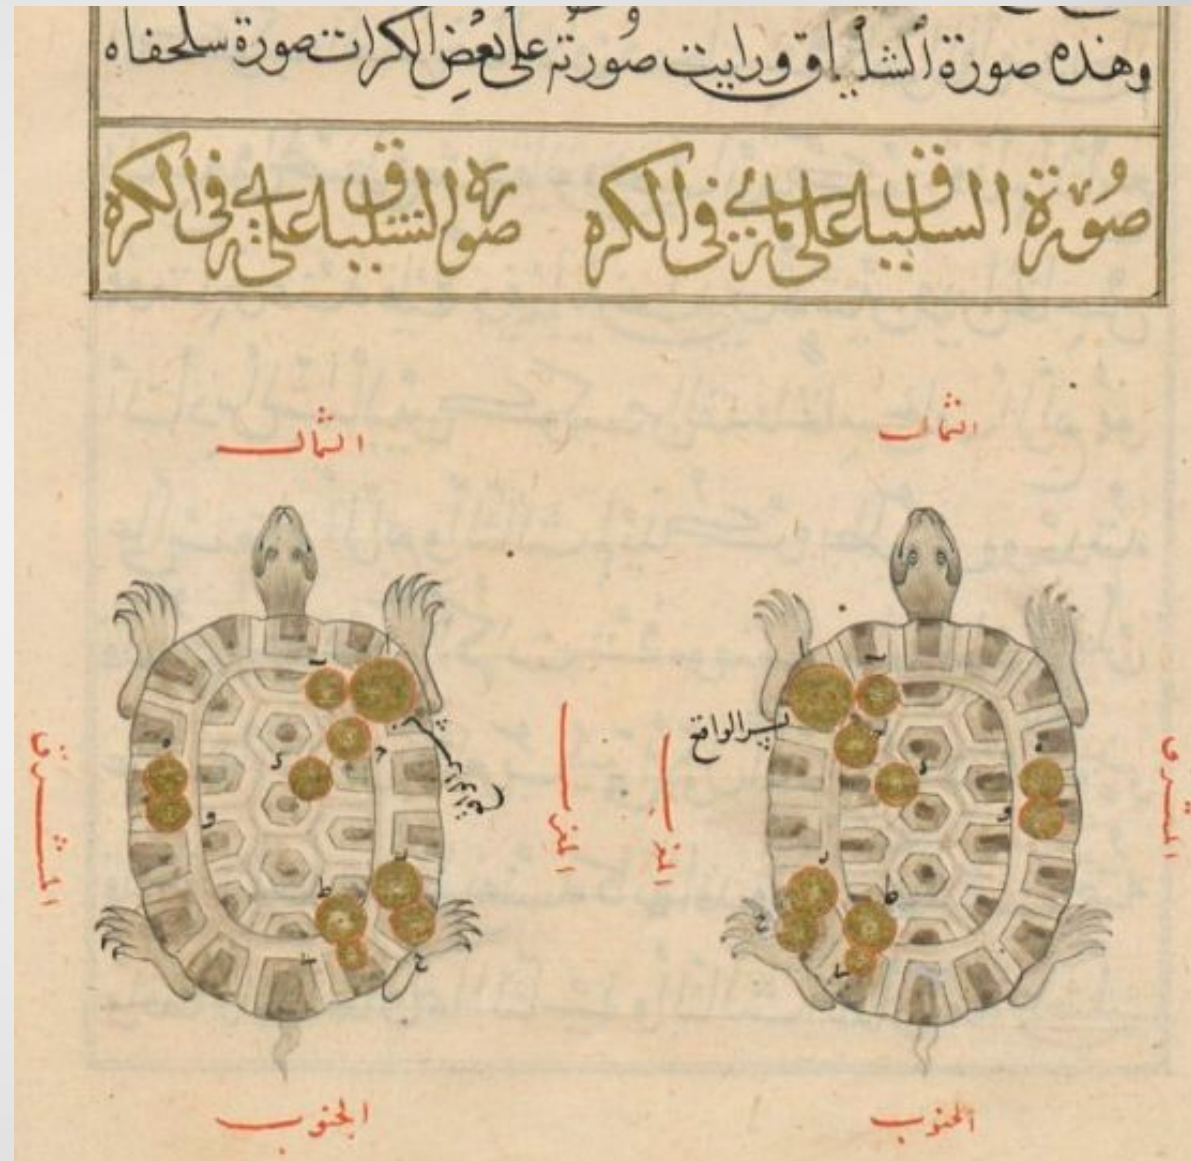 وهذه صورة ألشلياق ورايت صورته على بعض الكرات صورة سلحفاه
صورة السلياق على ما يرى فى الكره
صورة الشلياق على ما يرى فى الكره
الشمال
الشمال
نسر الواقع
المشرق
المغرب
المغرب
المشرق
الجنوب
الجنوب